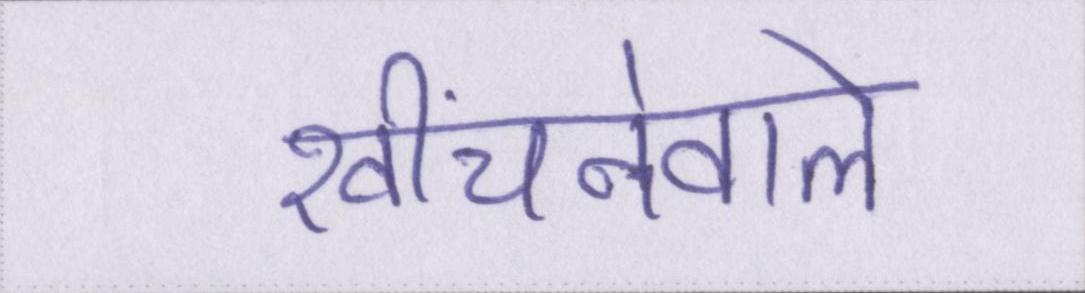 खींचनेवाले